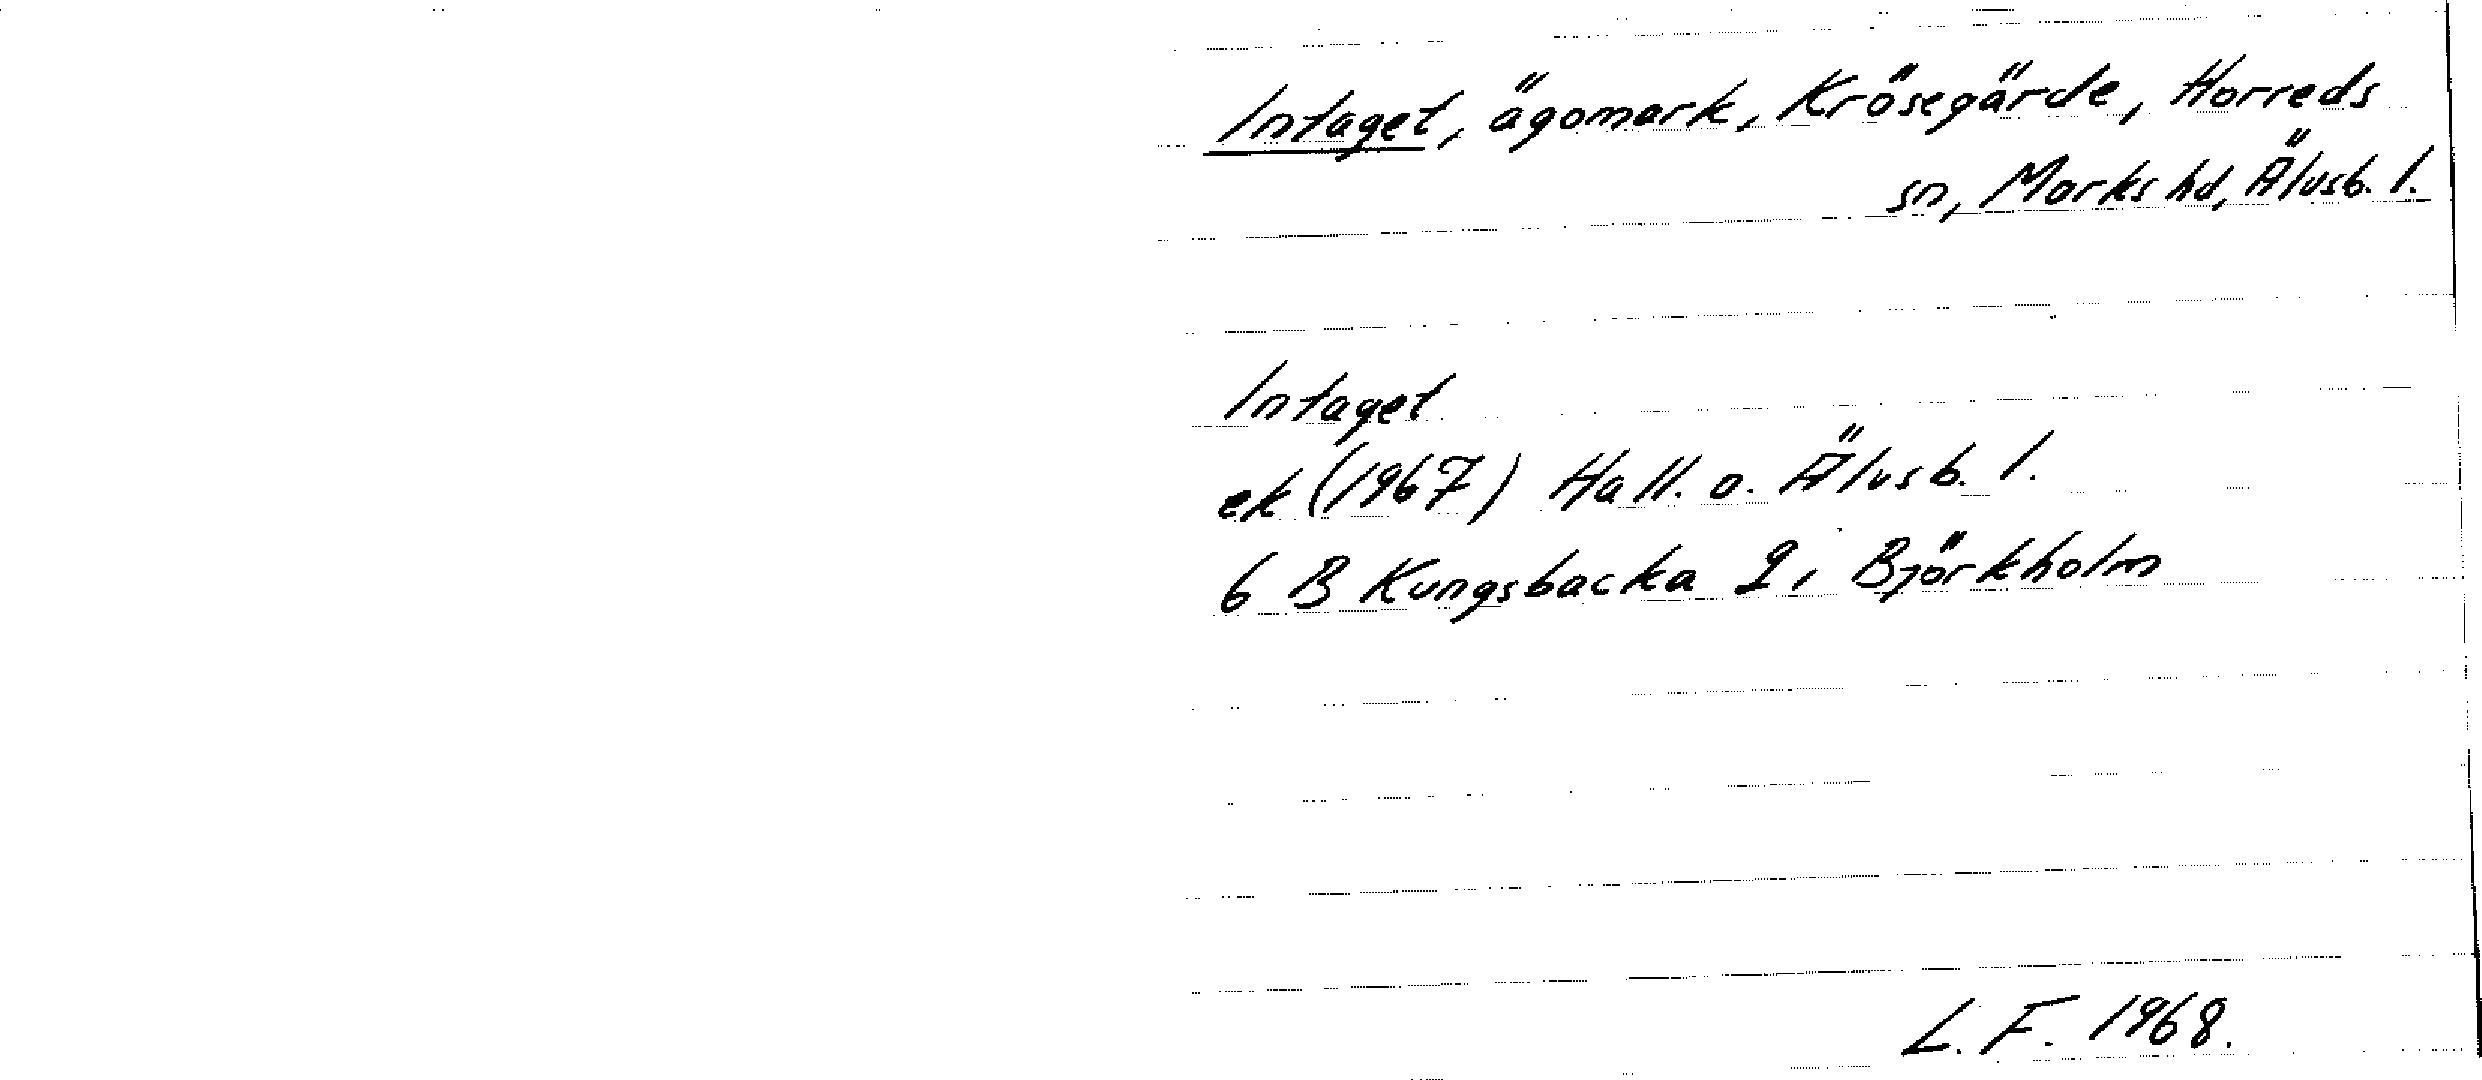 Intaget, ägomark, Krösegärde, Horreds
sn, Marks hd, Älvsb. l.
Intaget
ek (1967) Hall. o. Älvsb. l.
6 B Kungsbacka 2 i Björkholm
L. F. 1968.